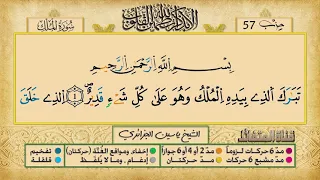 سُورَةُ المُلْك
حِزب 57
بِسْمِ اللَّهِ الرَّحْمَٰنِ الرَّحِيمِ
تَبَٰرَكَ اَلذِے بِيَدِهِ اِلْمُلْكُ وَهُوَ عَلَىٰ كُلِّ شَےْءٖ قَدِيرٌ ١ اِلذِے خَلَقَ
الشيخ ياسين الجزائري
مدّ 6 حركات لزوماً
مدّ 2 أو 4 أو 6 جوازاً
إخفاء، ومواقع الغنّة (حركتان)
تفخيم
مدّ مشبع 6 حركات
مدّ حركتان
إدغام، وما لا يُلفظ
قلقلة